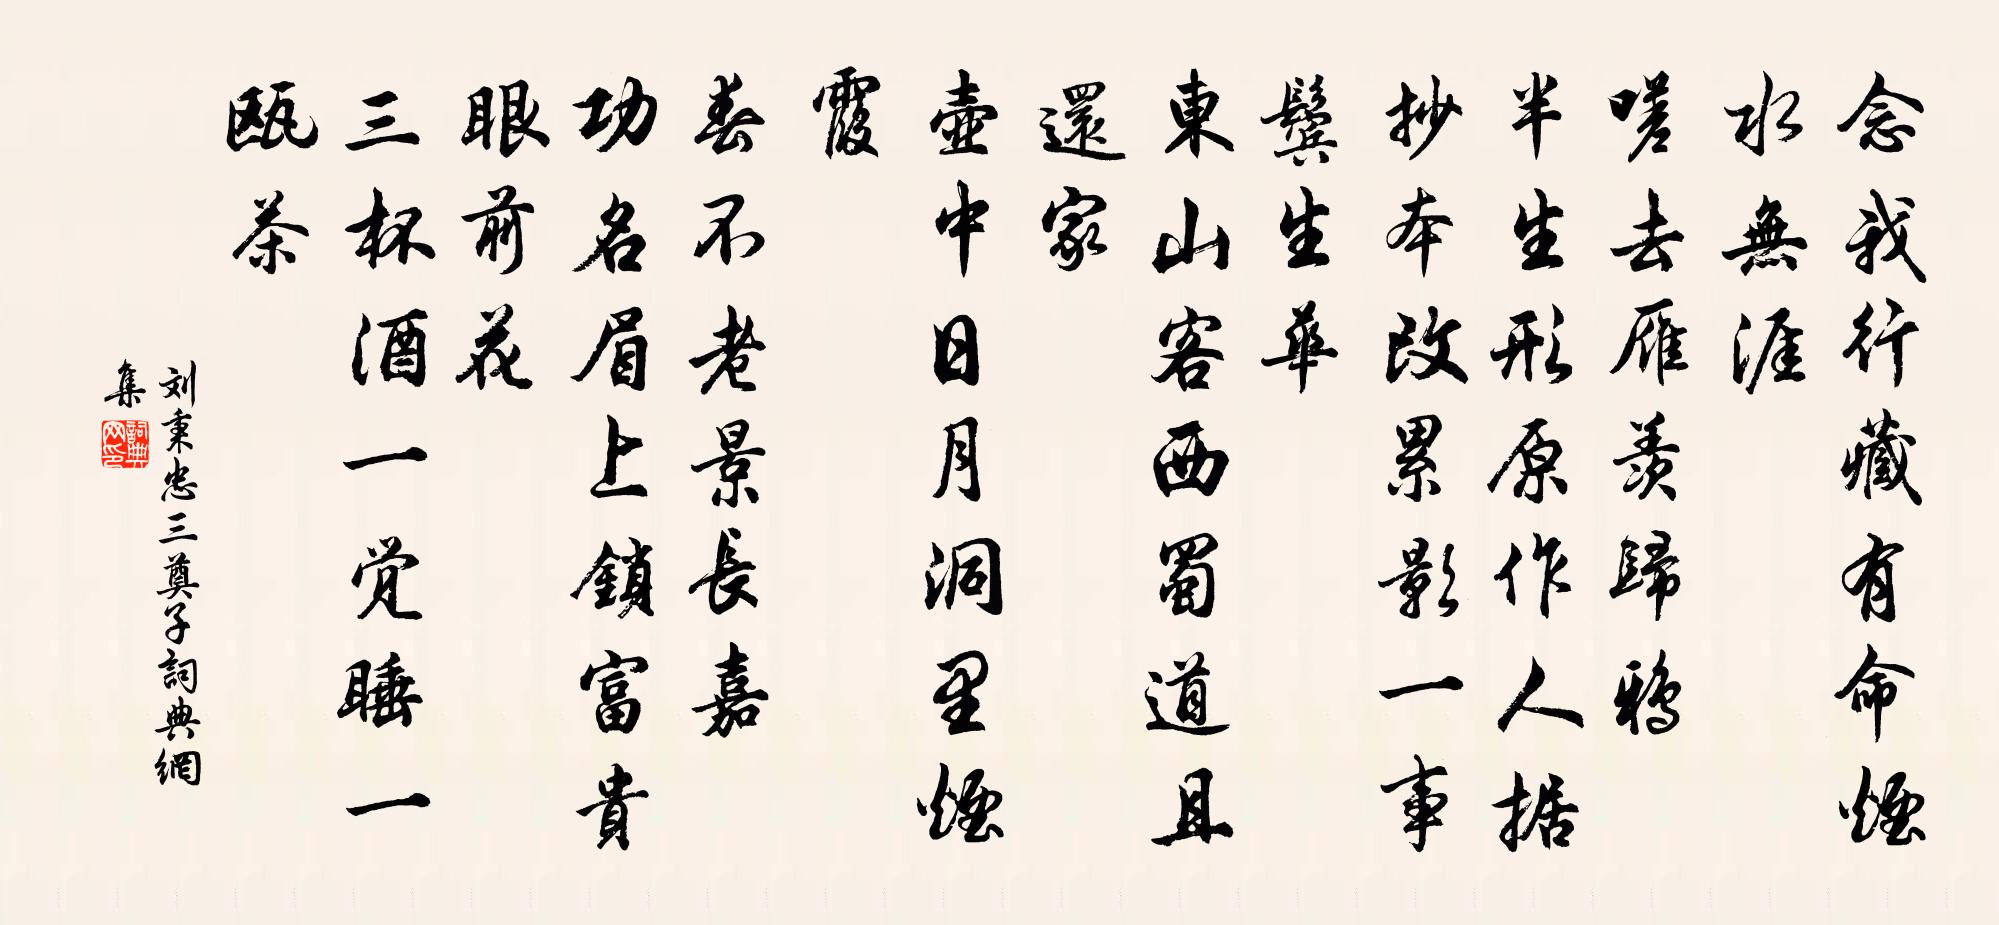 念我行藏有命煙
水無涯
嗟去雁羨歸鴉
半生形原作人据
抄本改累影一事
鬢生華
東山客西蜀道且
還家
壺中日月洞里煙
霞
春不老景長嘉
功名眉上鎖富貴
眼前花
三杯酒一觉睡一
甌茶
刘秉忠三奠子詞典網
集
詞典網印